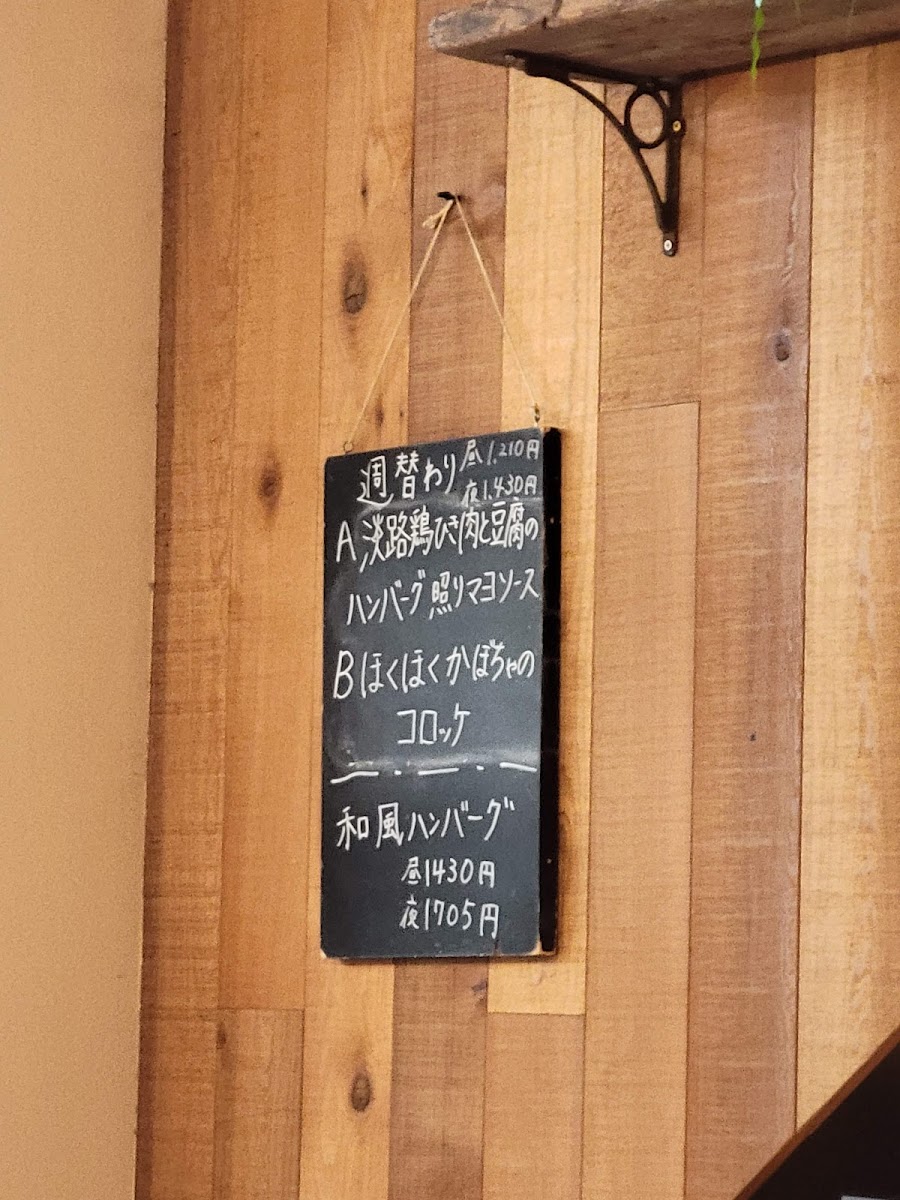 週替わり 昼1,210円
夜1,430円
A 淡路鶏ひき肉と豆腐の
ハンバーグ 照りマヨソース
B ほくほくかぼちゃの
コロッケ
和風ハンバーグ
昼1430円
夜1705円